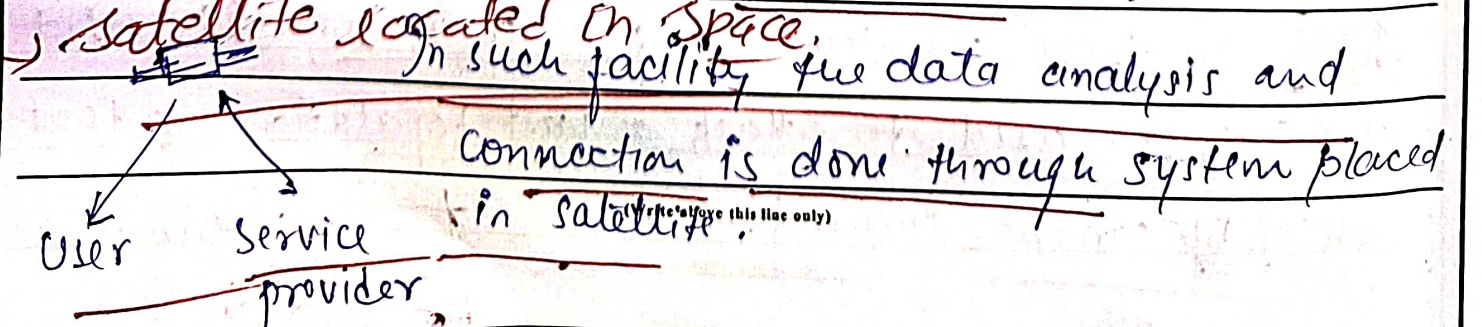 → Satellite located in Space.
In such facility the data analysis and
Connection is done through system placed
in satellite.
(Write above this line only)
User
Service
provider